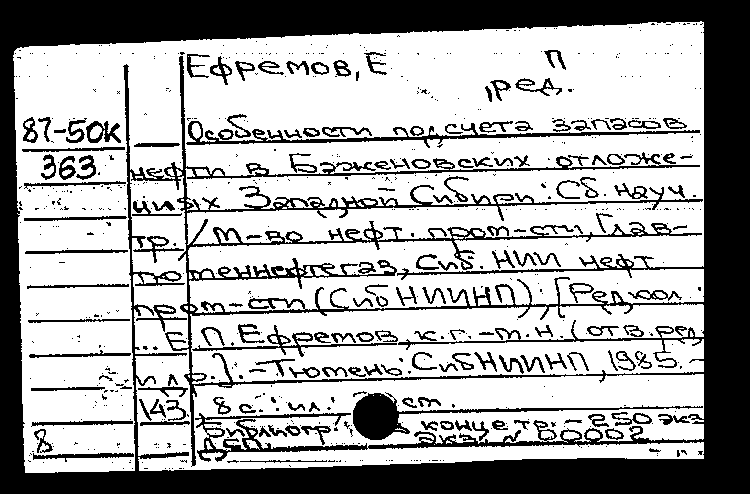 Ефремов, Е П
, ред.
87-50К Особенности подсчета запасов
363 нефти в Баженовских отложе-
ниях Западной Сибири: Сб. науч.
тр. / М-во нефт. пром-сти, Глав-
тюменнефтегаз, Сиб. НИИ нефт.
пром-сти (СибНИИНП); [Редкол.:
... Е.П. Ефремов, к.г.-м.н. (отв. ред.
и др.]. - Тюмень: СибНИИНП, 1985. -
143, 8 с.: ил.; ст.
Библиогр. конце тр. - 250 экз
8 ДСП. Экз. № 00002